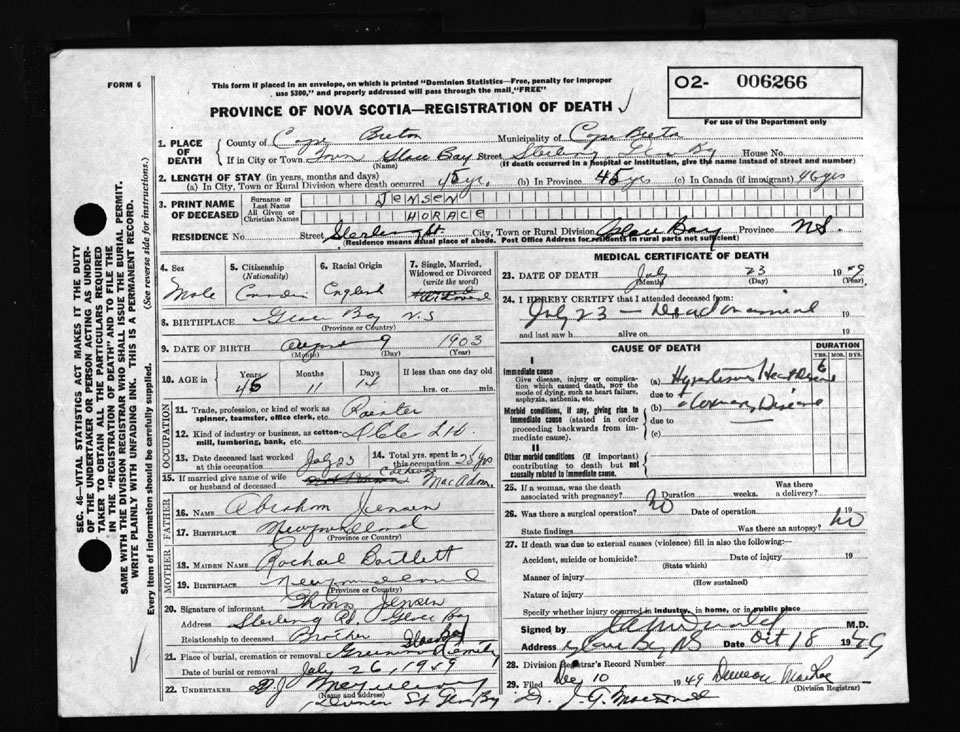 FORM 6
This form if placed in an envelope, on which is printed "Dominion Statistics—Free, penalty for improper
use $300," and properly addressed will pass through the mail "FREE"
O2- 006266
For use of the Department only
PROVINCE OF NOVA SCOTIA—REGISTRATION OF DEATH
1. PLACE OF DEATH
County of Cape Breton Municipality of Cape Breton
If in City or Town Town Glace Bay Street Sterling, Glace Bay House No.
(Name) (If death occurred in a hospital or institution, give the name instead of street and number)
2. LENGTH OF STAY (in years, months and days)
(a) In City, Town or Rural Division where death occurred 45 yr. (b) In Province 45 yrs (c) In Canada (if immigrant) 46 yrs
3. PRINT NAME OF DECEASED
Surname or Last Name JENSEN
All Given or Christian Names HORACE
RESIDENCE No. Street Sterling St City, Town or Rural Division Glace Bay Province N.S.
(Residence means usual place of abode. Post Office Address for residents in rural parts not sufficient)
4. Sex Male
5. Citizenship (Nationality) Canadian
6. Racial Origin England
7. Single, Married, Widowed or Divorced (write the word)
8. BIRTHPLACE Glace Bay N.S
(Province or Country)
9. DATE OF BIRTH August 9 1903
(Month) (Day) (Year)
10. AGE in Years Months Days If less than one day
45 11 14 hrs. or min.
OCCUPATION
11. Trade, profession, or kind of work as
spinner, teamster, office clerk, etc.
12. Kind of industry or business, as cotton-
mill, lumbering, bank, etc.
13. Date deceased last worked at this occupation July 23
14. Total yrs. spent in this occupation 28 yrs
15. If married give name of wife or husband of deceased MacAdam
FATHER
16. NAME Abraham Jensen
17. BIRTHPLACE Newfoundland
(Province or Country)
MOTHER
18. MAIDEN NAME Rachael Bartlett
19. BIRTHPLACE Newfoundland
(Province or Country)
20. Signature of informant Thms Jensen
Address Sterling Rd. Glace Bay
Relationship to deceased Brother
21. Place of burial, cremation or removal Greenwood Cemetery Glace Bay
Date of burial or removal July 26, 1949
22. UNDERTAKER
(Name and address)
St Glace Bay
MEDICAL CERTIFICATE OF DEATH
23. DATE OF DEATH July 23 1949
(Month) (Day) (Year)
24. I HEREBY CERTIFY that I attended deceased from:
July 23 — Dead on arrival 19
and last saw h alive on 19
CAUSE OF DEATH
DURATION
YRS. MOS. DYS.
I
Immediate cause
Give disease, injury or complication which caused death, NOT the mode of dying, such as heart failure, asphyxia, asthenia, etc.
(a) Hypertensive Heart Disease 6
due to
Morbid conditions, if any, giving rise to immediate cause (stated in order proceeding backwards from immediate cause).
(b) Coronary Disease
due to
(c)
II
Other morbid conditions (if important) contributing to death but not causally related to immediate cause.
25. If a woman, was the death associated with pregnancy? Duration weeks. Was there a delivery?
26. Was there a surgical operation? no Date of operation 19
State findings Was there an autopsy? no
27. If death was due to external causes (violence) fill in also the following:—
Accident, suicide or homicide? Date of injury 19
(State which)
Manner of injury
(How sustained)
Nature of injury
Specify whether injury occurred in industry, in home, or in public place
Signed by M.D.
Address Glace Bay NS Date Oct 18 1949
28. Division Registrar's Record Number
29. Filed Dec 10 1949 Duncan MacRae
(Division Registrar)
SEC. 46—VITAL STATISTICS ACT MAKES IT THE DUTY
OF THE UNDERTAKER OR PERSON ACTING AS UNDER-
TAKER TO OBTAIN ALL THE PARTICULARS REQUIRED
IN THE "REGISTRATION OF DEATH" AND TO FILE THE
SAME WITH THE DIVISION REGISTRAR WHO SHALL ISSUE THE BURIAL PERMIT.
WRITE PLAINLY WITH UNFADING INK. THIS IS A PERMANENT RECORD.
Every item of information should be carefully supplied. (See reverse side for instructions.)